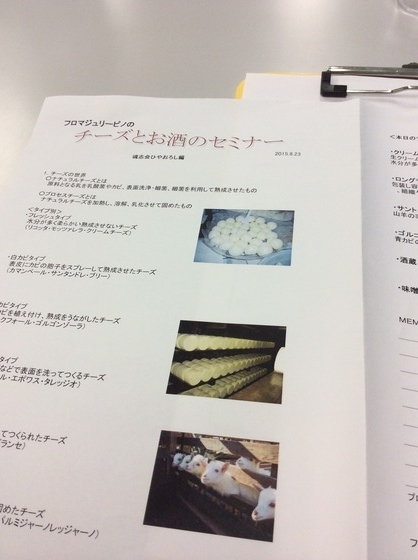 フロマジュリーピノの
チーズとお酒のセミナー
2015.8.23
1. チーズの世界
○ナチュラルチーズとは
原料となる乳を乳酸菌やカビ、表面洗浄・細菌、細菌を利用して熟成させたもの
○プロセスチーズとは
ナチュラルチーズを加熱し、溶解、乳化させて固めたもの
<タイプ別>
・フレッシュタイプ
水分が多く柔らかい熟成させないチーズ
(リコッタ・モッツァレラ・クリームチーズ)
・白カビタイプ
表皮にカビの胞子をスプレーして熟成させたチーズ
(カマンベール・サンタンドレ・ブリー)
カビタイプ
を植え付け、熟成をうながしたチーズ
クフォール・ゴルゴンゾーラ)
タイプ
などで表面を洗ってつくるチーズ
ル・エポワス・タレッジオ)
てつくられたチーズ
ランセ)
固めたチーズ
パルミジャーノレッジャーノ)
<本日の
・クリーム
生クリー
水分が多
・ロング
包装し容
・サント
山羊の
・ゴルゴ
青カビの
・酒蔵
・味噌
MEM